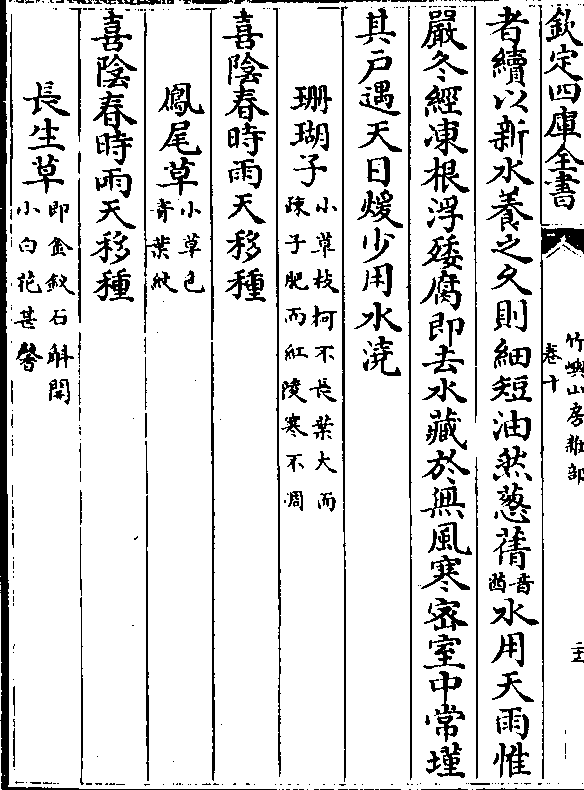 欽定四庫全書
竹嶼山房雜部
卷十
者續以新水養之久則細短油然蔥蒨音茜水用天雨惟
嚴冬經凍根浮矮腐即去水藏於無風寒密室中常墐
其戶遇天日煖少用水澆
珊瑚子小草枝柯不長葉大而疎子肥而紅陵寒不凋
喜陰春時雨天移種
鳳尾草小草色青葉紋
喜陰春時雨天移種
長生草即金釵石斛開小白花甚馨